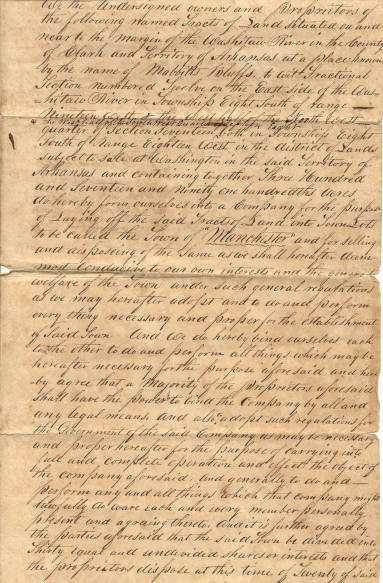 We the Undersigned owners and Proprietors of
the following named Tracts of Land situated on and
near to the margin of the Washitaw River in the County
of Clark and Territory of Arkansas at a place known
by the name of Bluffs, to wit Fractional
Section numbered Twelve on the East side of the Was-
hitaw River in Township Eight South of range
the North West
quarter of Section Seventeen both in Township Eight
South of range Eighteen West in the district of Lands
subject to sale at Washington in the said Territory of
Arkansas and containing together Three Hundred
and Seventeen and ninety one hundredths acres
do hereby form ourselves into a Company for the purpose
of Laying off the Said Tracts of Land into Town Lots
to be called the Town of "Manchester" and for selling
and disposing of the Same as we shall hereafter deem
most Conducive to our own interests and the general
welfare of the Town under such general regulations
as we may hereafter adopt and to do and perform
every thing necessary and proper for the establishment
of Said Town And we do hereby bind ourselves each
to the other to do and perform all things which may be
hereafter necessary for the purpose aforesaid and here-
by agree that a Majority of the proprietors aforesaid
shall have the power to bind the Company by all and
any legal means, and also adopt such regulations for
the Government of the said Company as may be necessary
and proper hereafter for the purpose of carrying into
full and complete operation and effect the object of
the company aforesaid, and generally to do and
perform any and all things which that company might
lawfully do were each and every member personally
present and agreeing thereto, And it is further agreed by
the parties aforesaid that the said Town be divided into
Thirty equal and undivided shares or interests and that
the proprietors dispose at this time of Twenty of said